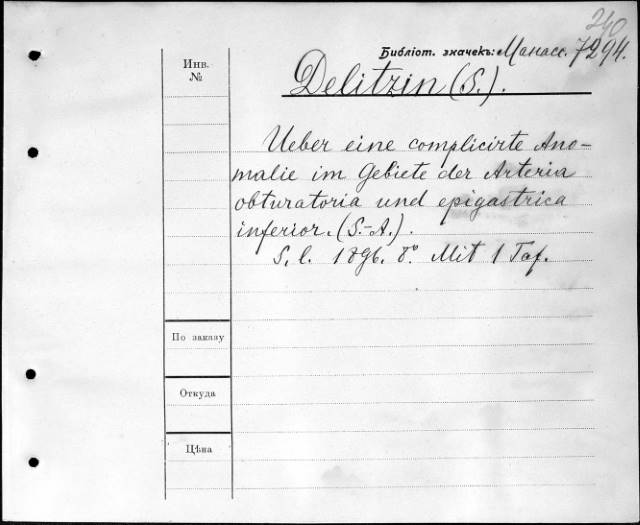 240
Библіот. значекъ: Манасс. 7294.
Инв.
№
Delitzin (S.).
Ueber eine complicirte Ano-
malie im Gebiete der Arteria
obturatoria und epigastrica
inferior. (S.-A.).
S. l. 1896. 8°. Mit 1 Taf.
По заказу
Откуда
Цѣна